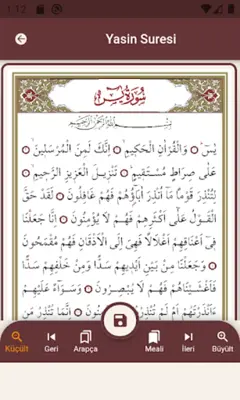 1:12
Yasin Suresi
سُورَةُ يٰسٓ
بِسْمِ اللّٰهِ الرَّحْمٰنِ الرَّحِيمِ
يٰسٓ ۞ وَالْقُرْاٰنِ الْحَكِيمِ ۞ اِنَّكَ لَمِنَ الْمُرْسَلِينَ ۞
عَلٰى صِرَاطٍ مُسْتَقِيمٍ ۞ تَنْزِيلَ الْعَزِيزِ الرَّحِيمِ ۞
لِتُنْذِرَ قَوْمًا مَٓا اُنْذِرَ اٰبَٓاؤُ۬هُمْ فَهُمْ غَافِلُونَ ۞ لَقَدْ حَقَّ
الْقَوْلُ عَلٰٓى اَكْثَرِهِمْ فَهُمْ لَا يُؤْمِنُونَ ۞ اِنَّا جَعَلْنَا
فِٓى اَعْنَاقِهِمْ اَغْلَالًا فَهِىَ اِلَى الْاَذْقَانِ فَهُمْ مُقْمَحُونَ
۞ وَجَعَلْنَا مِنْ بَيْنِ اَيْدِيهِمْ سَدًّا وَمِنْ خَلْفِهِمْ سَدًّا
فَاَغْشَيْنَاهُمْ فَهُمْ لَا يُبْصِرُونَ ۞ وَسَوَٓاءٌ عَلَيْهِمْ
Küçült
Geri
Arapça
Meali
İleri
Büyült